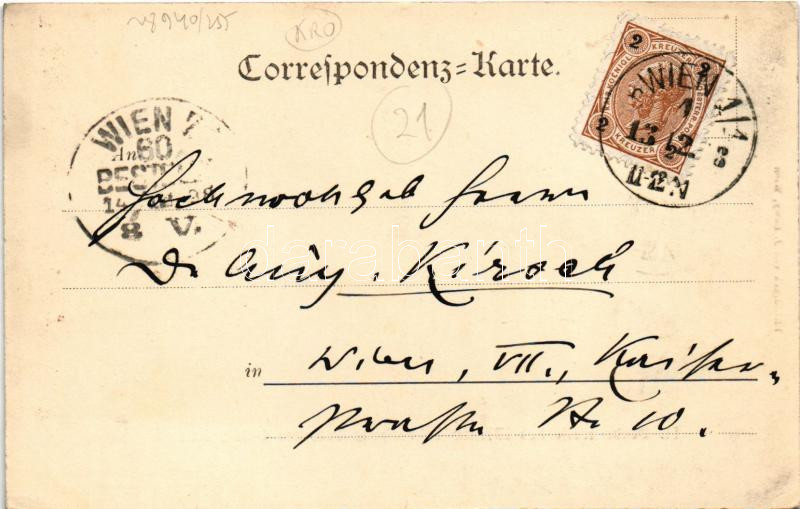 Correspondenz=Karte.
KRO
21
2 KREUZER 2
WIEN 1/1
13 2
11-12 N
WIEN 7
60
BESTELLT
14
8 V.
An
Hochwohlgeb Herrn
Dr Aug. Kirsch
in Wien, VII., Kaiser-
strasse Nr 10.
darabanth